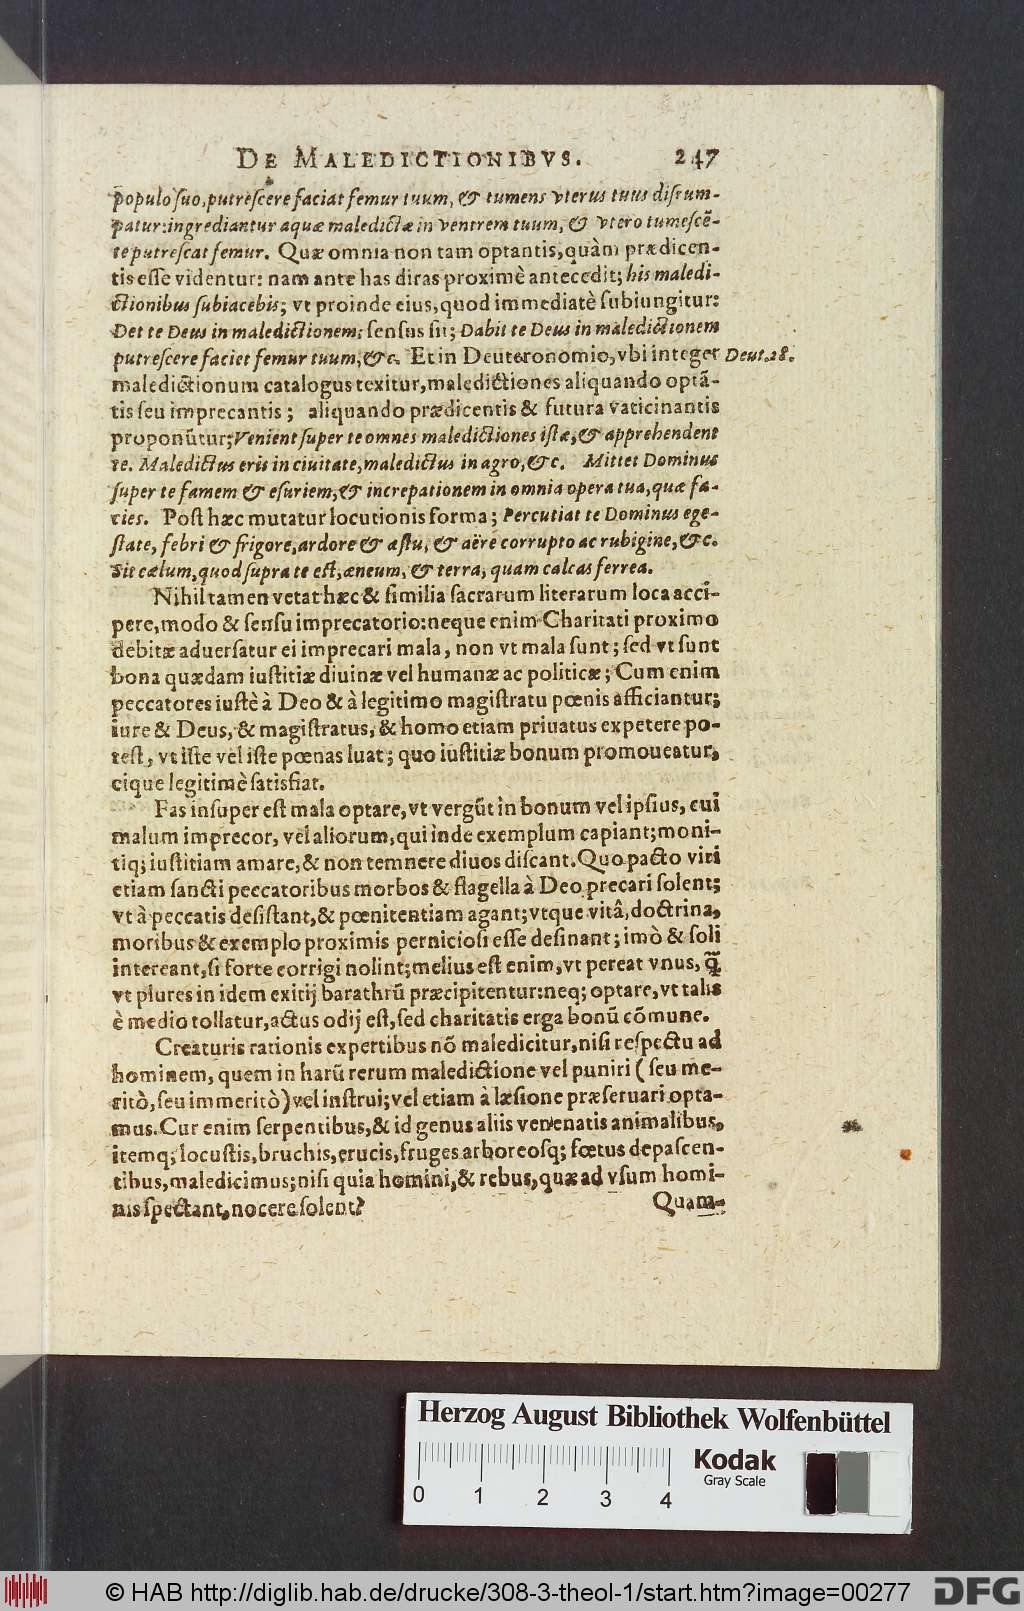 DE MALEDICTIONIBVS. 247
populo suo, putrescere faciat femur tuum, & tumens vterus tuus disrum-
patur: ingrediantur aquæ maledictæ in ventrem tuum, & vtero tumescē-
te putrescat femur. Quæ omnia non tam optantis, quàm prædicen-
tis esse videntur: nam ante has diras proximè antecedit; his maledi-
ctionibus subiacebis; vt proinde eius, quod immediatè subiungitur:
Det te Deus in maledictionem; sensus sit; Dabit te Deus in maledictionem
putrescere faciet femur tuum, &c. Et in Deuteronomio, vbi integer Deut. 28.
maledictionum catalogus texitur, maledictiones aliquando optā-
tis seu imprecantis; aliquando prædicentis & futura vaticinantis
proponūtur; Venient super te omnes maledictiones istæ, & apprehendent
te. Maledictus eris in ciuitate, maledictus in agro, &c. Mittet Dominus
super te famem & esuriem, & increpationem in omnia opera tua, quæ fa-
cies. Post hæc mutatur locutionis forma; Percutiat te Dominus ege-
state, febri & frigore, ardore & æstu, & aëre corrupto ac rubigine, &c.
Sit cælum, quod supra te est, æneum, & terra, quam calcas ferrea.
Nihil tamen vetat hæc & similia sacrarum literarum loca acci-
pere, modo & sensu imprecatorio: neque enim Charitati proximo
debitæ aduersatur ei imprecari mala, non vt mala sunt; sed vt sunt
bona quædam iustitiæ diuinæ vel humanæ ac politicæ; Cum enim
peccatores iustè à Deo & à legitimo magistratu pœnis afficiantur;
iure & Deus, & magistratus, & homo etiam priuatus expetere po-
test, vt iste vel iste pœnas luat; quo iustitiæ bonum promoueatur,
eique legitimè satisfiat.
Fas insuper est mala optare, vt vergūt in bonum vel ipsius, cui
malum imprecor, vel aliorum, qui inde exemplum capiant; moni-
tiq; iustitiam amare, & non temnere diuos discant. Quo pacto viri
etiam sancti peccatoribus morbos & flagella à Deo precari solent;
vt à peccatis desistant, & pœnitentiam agant; vtque vitâ, doctrina,
moribus & exemplo proximis perniciosi esse desinant; imò & soli
intereant, si forte corrigi nolint; melius est enim, vt pereat vnus, q̃
vt plures in idem exitij barathrū præcipitentur: neq; optare, vt talis
è medio tollatur, actus odij est, sed charitatis erga bonū cōmune.
Creaturis rationis expertibus nō maledicitur, nisi respectu ad
hominem, quem in harū rerum maledictione vel puniri (seu me-
ritò, seu immeritò) vel instrui; vel etiam à læsione præseruari opta-
mus. Cur enim serpentibus, & id genus aliis venenatis animalibus,
itemq; locustis, bruchis, erucis, fruges arboreosq; fœtus depascen-
tibus, maledicimus; nisi quia homini, & rebus, quæ ad vsum homi-
nis spectant, nocere solent?
Quam-
Herzog August Bibliothek Wolfenbüttel
0 1 2 3 4
Kodak
Gray Scale
© HAB http://diglib.hab.de/drucke/308-3-theol-1/start.htm?image=00277
DFG